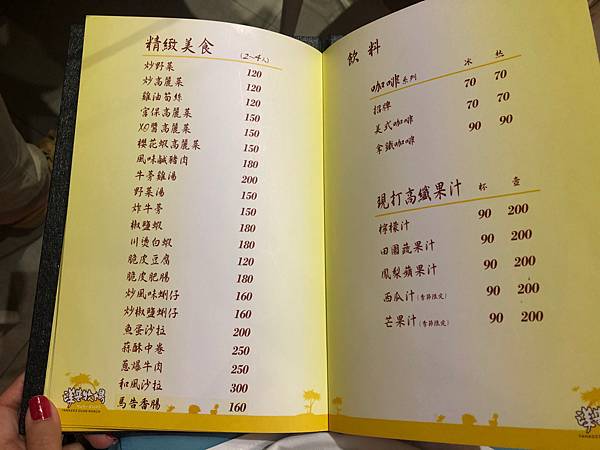 精緻美食 (2~4人)
炒野菜 120
炒高麗菜 120
雞油筍絲 120
宮保高麗菜 150
XO醬高麗菜 150
櫻花蝦高麗菜 150
風味鹹豬肉 180
牛蒡雞湯 200
野菜湯 150
炸牛蒡 150
椒鹽蝦 180
川燙白蝦 180
脆皮豆腐 120
脆皮肥腸 180
炒風味蜊仔 160
炒椒鹽蜊仔 160
魚蛋沙拉 200
蒜酥中卷 250
蔥爆牛肉 250
和風沙拉 300
馬告香腸 160
飲料
咖啡系列 冰 熱
招牌 70 70
美式咖啡 70 70
拿鐵咖啡 90 90
現打高纖果汁 杯 壺
檸檬汁 90 200
田園蔬果汁 90 200
鳳梨蘋果汁 90 200
西瓜汁(季節限定) 90 200
芒果汁(季節限定) 90 200